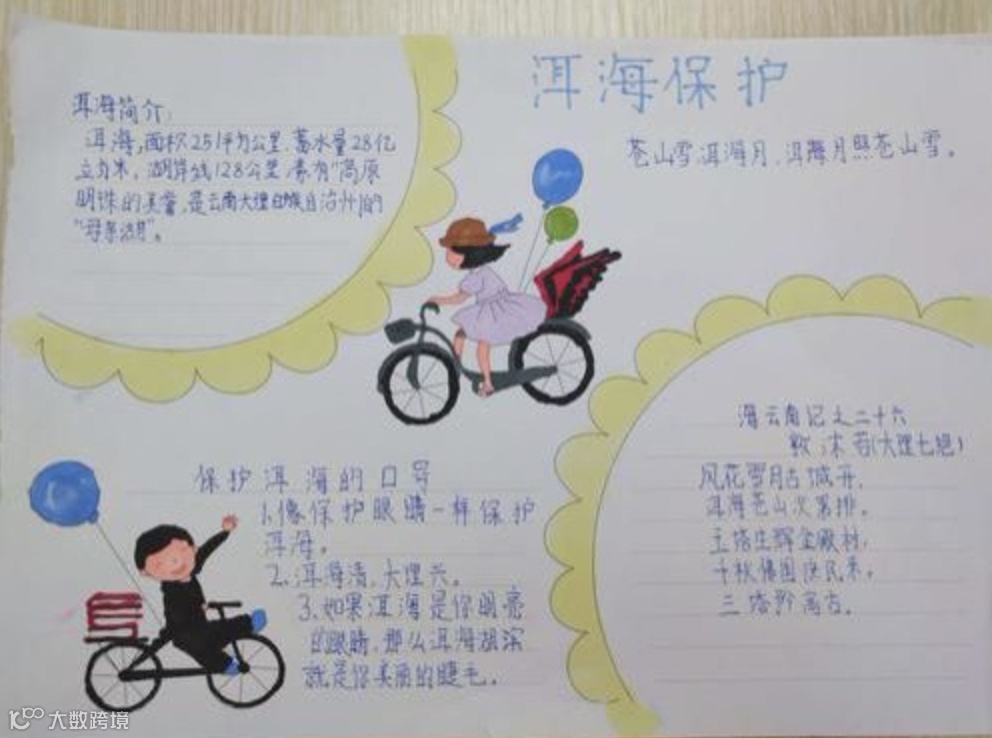 洱海保护
苍山雪洱海月,洱海月照苍山雪。
洱海简介:
洱海,面积251平方公里,蓄水量28亿
立方米,湖岸线128公里,素有"高原
明珠的美誉,是云南大理白族自治州的
"母亲湖"。
保护洱海的口号
1.像保护眼睛一样保护
洱海。
2.洱海清,大理兴。
3.如果洱海是你明亮
的眼睛,那么洱海湖滨
就是你美丽的睫毛。
云南记之二十六
沫若(大理七绝)
风花雪月古城开,
洱海苍山次第排。
千秋佛国庶民来。
三塔
大数跨境